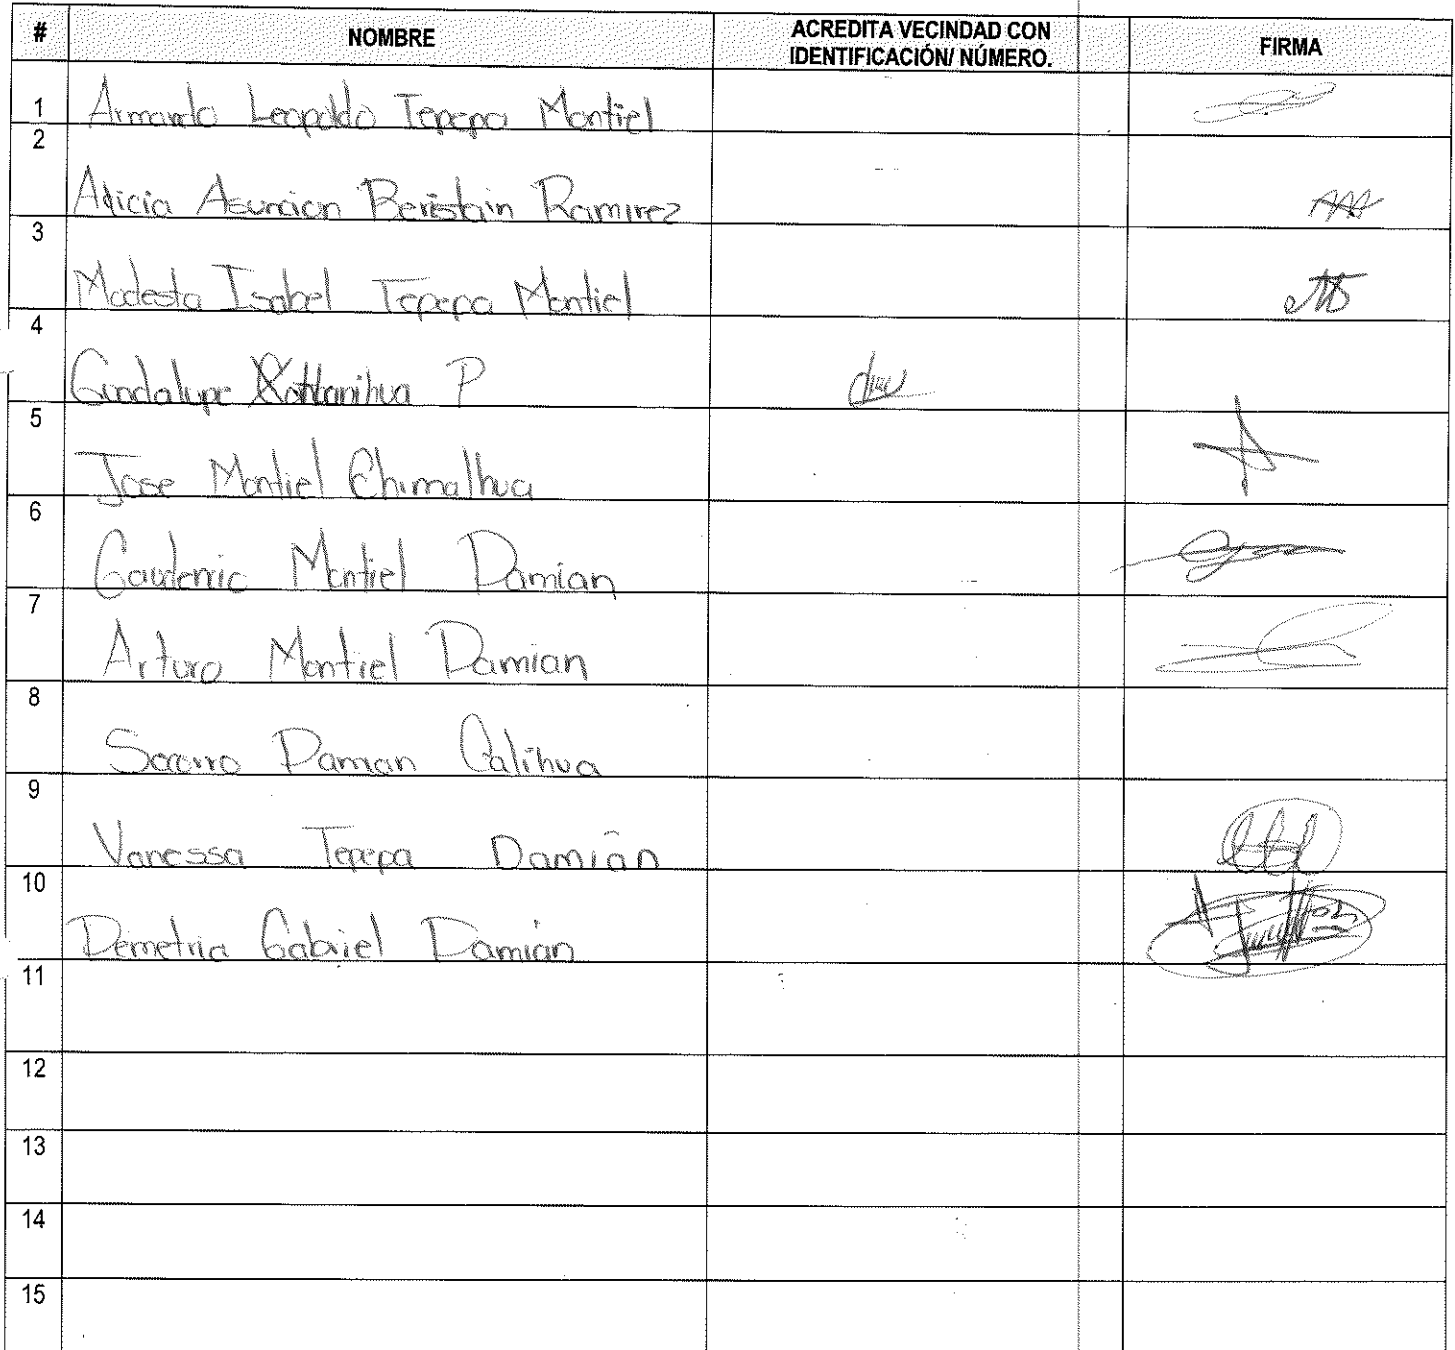 # NOMBRE ACREDITA VECINDAD CON IDENTIFICACIÓN/ NÚMERO. FIRMA
1 Armando Leopoldo Tepepa Montiel
2 Alicia Asuncion Beristain Ramirez
3 Modesta Isabel Tepepa Montiel
4 Guadalupe P
5 Jose Montiel Chimalhua
6 Gaudencio Montiel Damian
7 Arturo Montiel Damian
8 Socorro Damian Calihua
9 Vanessa Tepepa Damián
10 Demetria Gabriel Damián
11
12
13
14
15